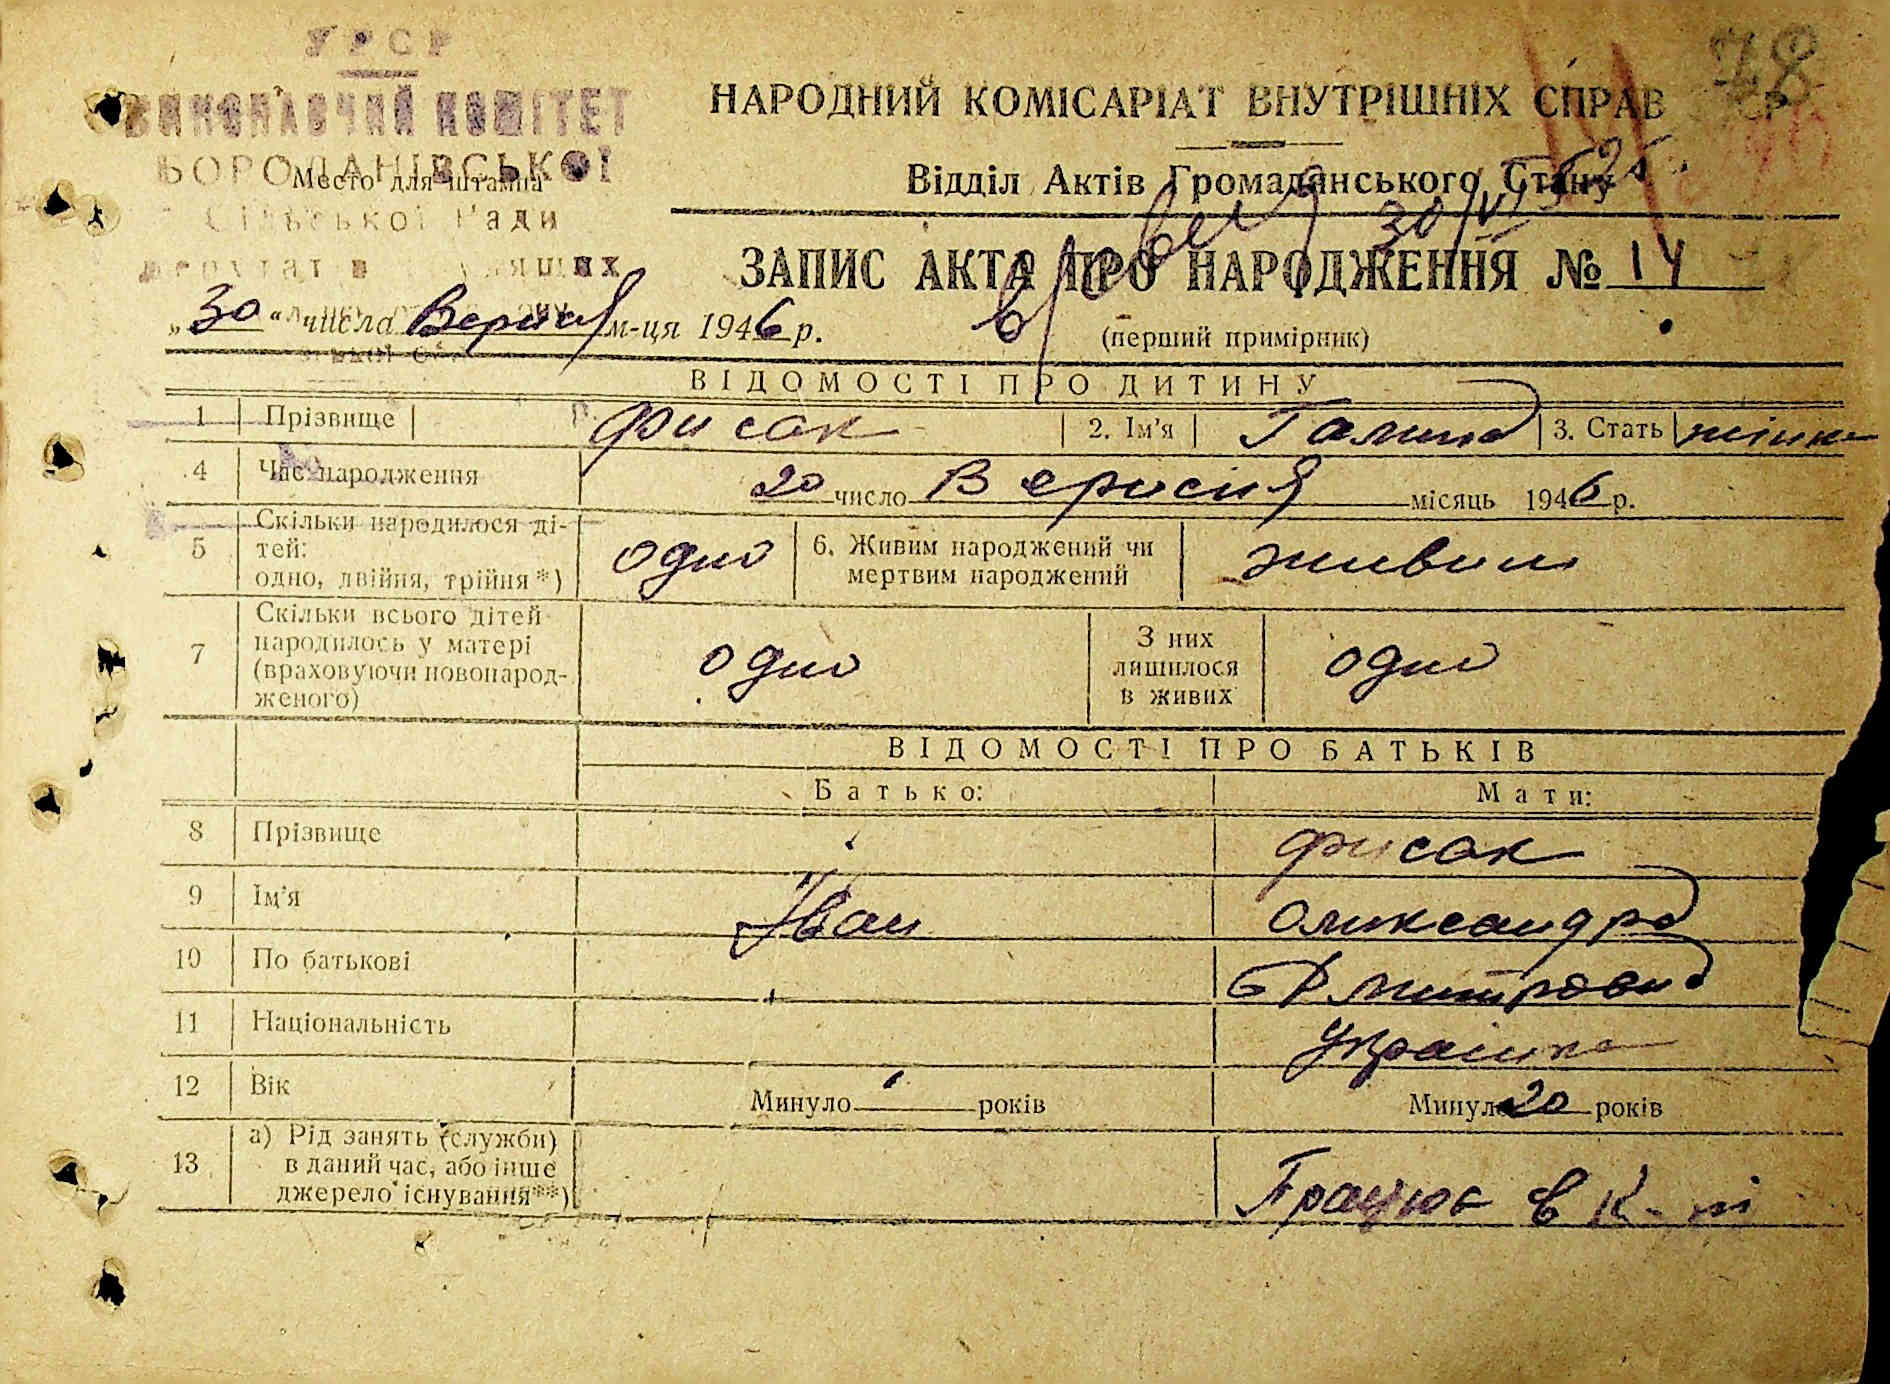 УРСР
78
ВИКОНАВЧИЙ КОМІТЕТ
НАРОДНИЙ КОМІСАРІАТ ВНУТРІШНІХ СПРАВ СР
БОРОДАНІВСЬКОЇ
Место для штампа
Відділ Актів Громадянського Стану
Сільської Ради
30/VI
ЗАПИС АКТА ПРО НАРОДЖЕННЯ № 14
„30“ числа Вересня м-ця 1946 р.
(перший примірник)
ВІДОМОСТІ ПРО ДИТИНУ
1 Прізвище Фисак 2. Ім'я Галина 3. Стать жінк
4 Час народження 20 число Вересня місяць 1946 р.
5 Скільки народилося ді-
тей:
одно, двійня, трійня*) одно 6. Живим народжений чи
мертвим народжений живим
7 Скільки всього дітей
народилось у матері
(враховуючи новонарод-
женого) одно З них
лишилося
в живих одно
ВІДОМОСТІ ПРО БАТЬКІВ
Батько: Мати:
8 Прізвище Фисак
9 Ім'я Іван Олександра
10 По батькові Дмитровна
11 Національність Українка
12 Вік Минуло років Минуло 20 років
13 а) Рід занять (служби)
в даний час, або інше
джерело існування**) Працює в к-пі